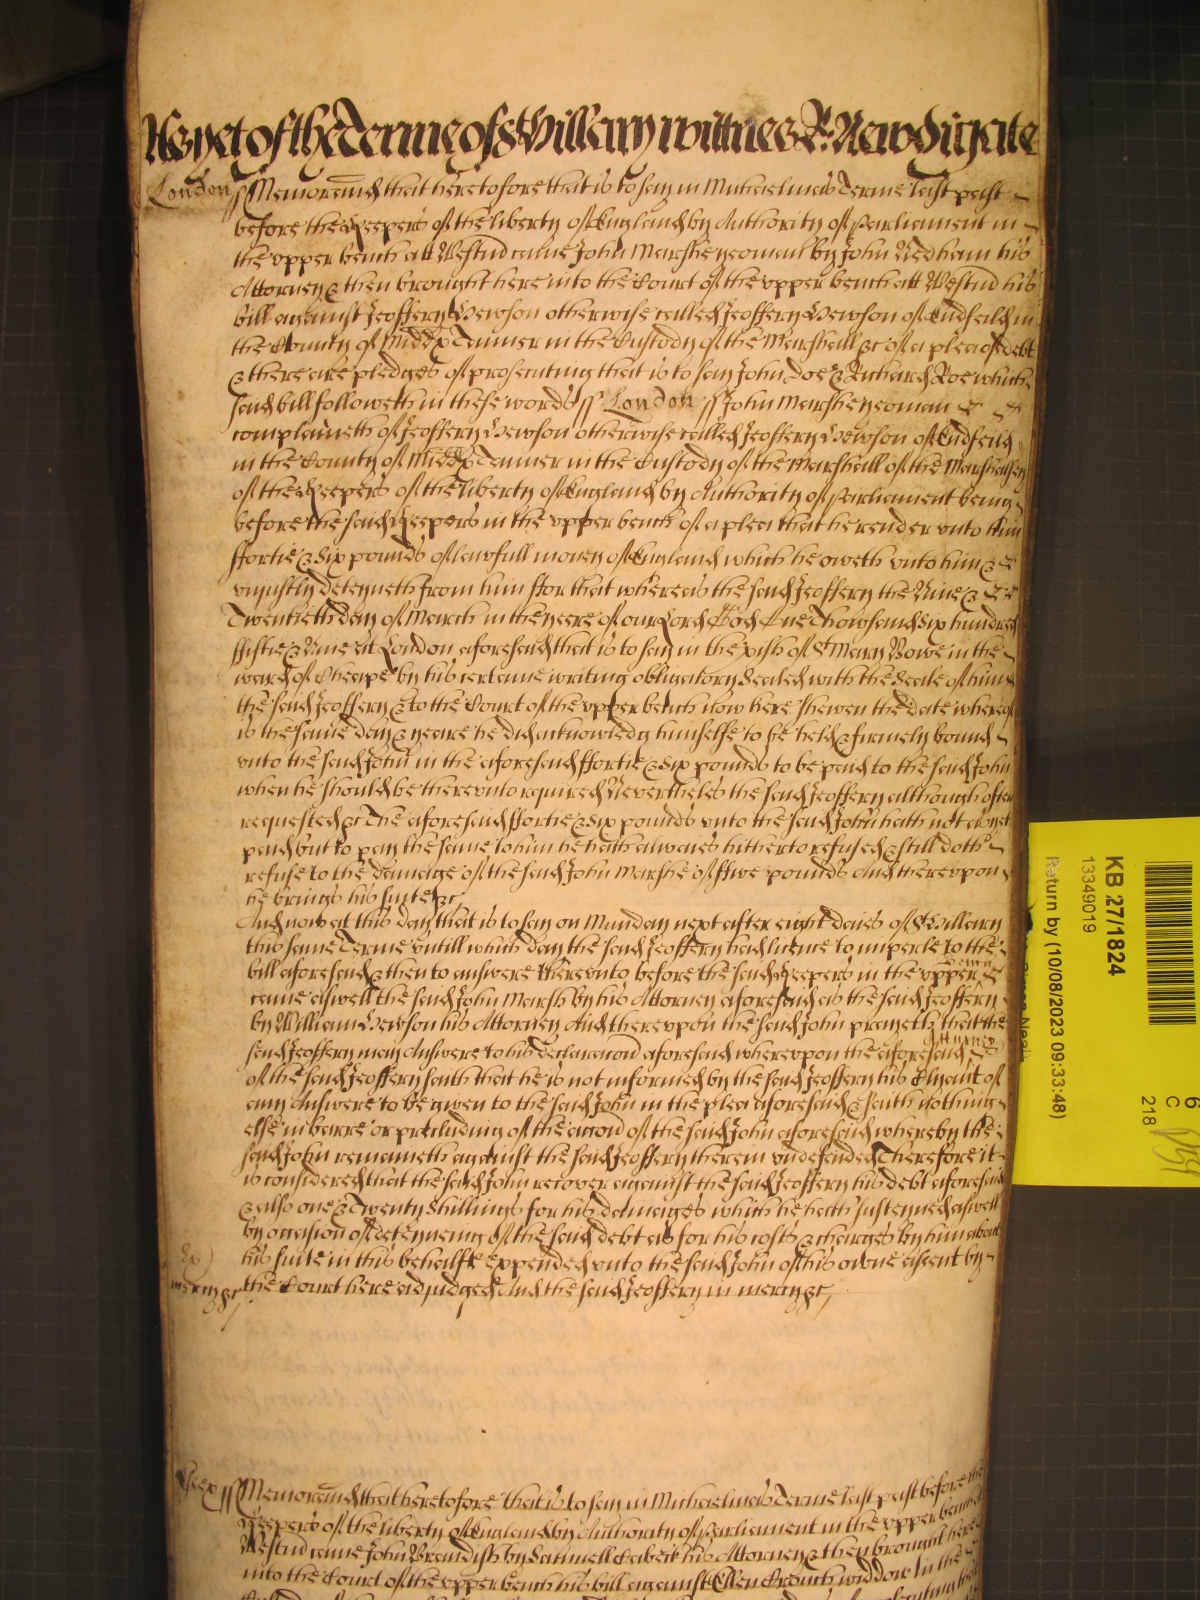 As yet of the Terme of St Hillary wittnes R: Newdigate
London ss Memorand that heretofore that is to say in Michaelmas Terme last past
before the Keepers of the liberty of England by Authority of Parliament in
the vpper bench att Westm came John Marshe yeoman by John Nedham his
Attorney & then brought here into the Court of the vpper bench att Westm his
bill against Jeoffery Hewson otherwise called Jeoffery Hewson of Endfeild in
the County of Midd Tanner in the Custody of the Marshall &c of a plea of debt
& there are pledges of prosecuting that is to say John Doe & Richard Roe which
said bill followeth in these words ss London ss John Marshe yeoman
complaineth of Jeoffery Hewson otherwise called Jeoffery Hewson of Endfeild
in the County of Midd Tanner in the Custody of the Marshall of the Marshalsey
of the Keepers of the liberty of England by Authority of Parliament being
before the said Keepers in the vpper bench of a plea that he render vnto him
ffortie & Six pounds of lawfull money of England which he oweth vnto him &
vniustly deteyneth from him ffor that whereas the said Jeoffery the Nine &
Twentieth day of March in the yeare of our Lord God One Thowsand Six hundred
ffiftie & Nine at London aforesaid that is to say in the pish of St Mary Bowe in the
ward of Cheape by his certaine writing obligatory Sealed with the Seale of him
the said Jeoffery & to the Court of the vpper bench now here shewen the date whereof
is the same day & yeare he did acknowledg himselfe to be held & firmely bound
vnto the said John in the aforesaid ffortie & Six pounds to be paid to the said John
when he should be therevnto required Nevertheles the said Jeoffery although often
requested &c The aforesaid ffortie & Six pounds vnto the said John hath not as yet
paid but to pay the same to him he hath alwaies hitherto refused & still doth
refuse to the damage of the said John Marshe of ffive pounds And therevpon
he brings his suite &c
And now at this day that is to say on Munday next after eight daies of St Hillary
this same Terme vntill which day the said Jeoffery had licence to imparle to the
bill aforesaid & then to answere therevnto before the said Keepers in the vpper bench
came aswell the said John Marsh by his Attorney aforesaid as the said Jeoffery
by William Hewson his Attorney And therevpon the said John prayeth that the
said Jeoffery may Answere to his declaracon aforesaid wherevpon the aforesaid Attorney
of the said Jeoffery saith that he is not informed by the said Jeoffery his Clyant of
any Answere to be given to the said John in the plea aforesaid & saith nothing
else in barre or precluding of the accon of the said John aforesaid whereby the
said John remaineth against the said Jeoffery therein vndefended Therefore it
is considered that the said John recover against the said Jeoffery his debt aforesaid
& also one & Twenty Shillings for his damages which he hath Susteyned aswell
by occasion of deteyneing of the said debt as for his costs & charges by him about
his suite in this behalfe expended vnto the said John of his owne assent by
the Court here adjudged And the said Jeoffery in mercy &c
mercy &c
Essex ss Memorand that heretofore that is to say in Michaelmas Terme last past before the
Keepers of the liberty of England by Authority of Parliament in the vpper bench att
Westm came John Brandish by Samuell his Attorney & then brought here
into the Court of the vpper bench his bill against Ellen Crouch widdow in the
KB 27/1824
13349019
Return by (10/08/2023 09:33:48)
6
C
218